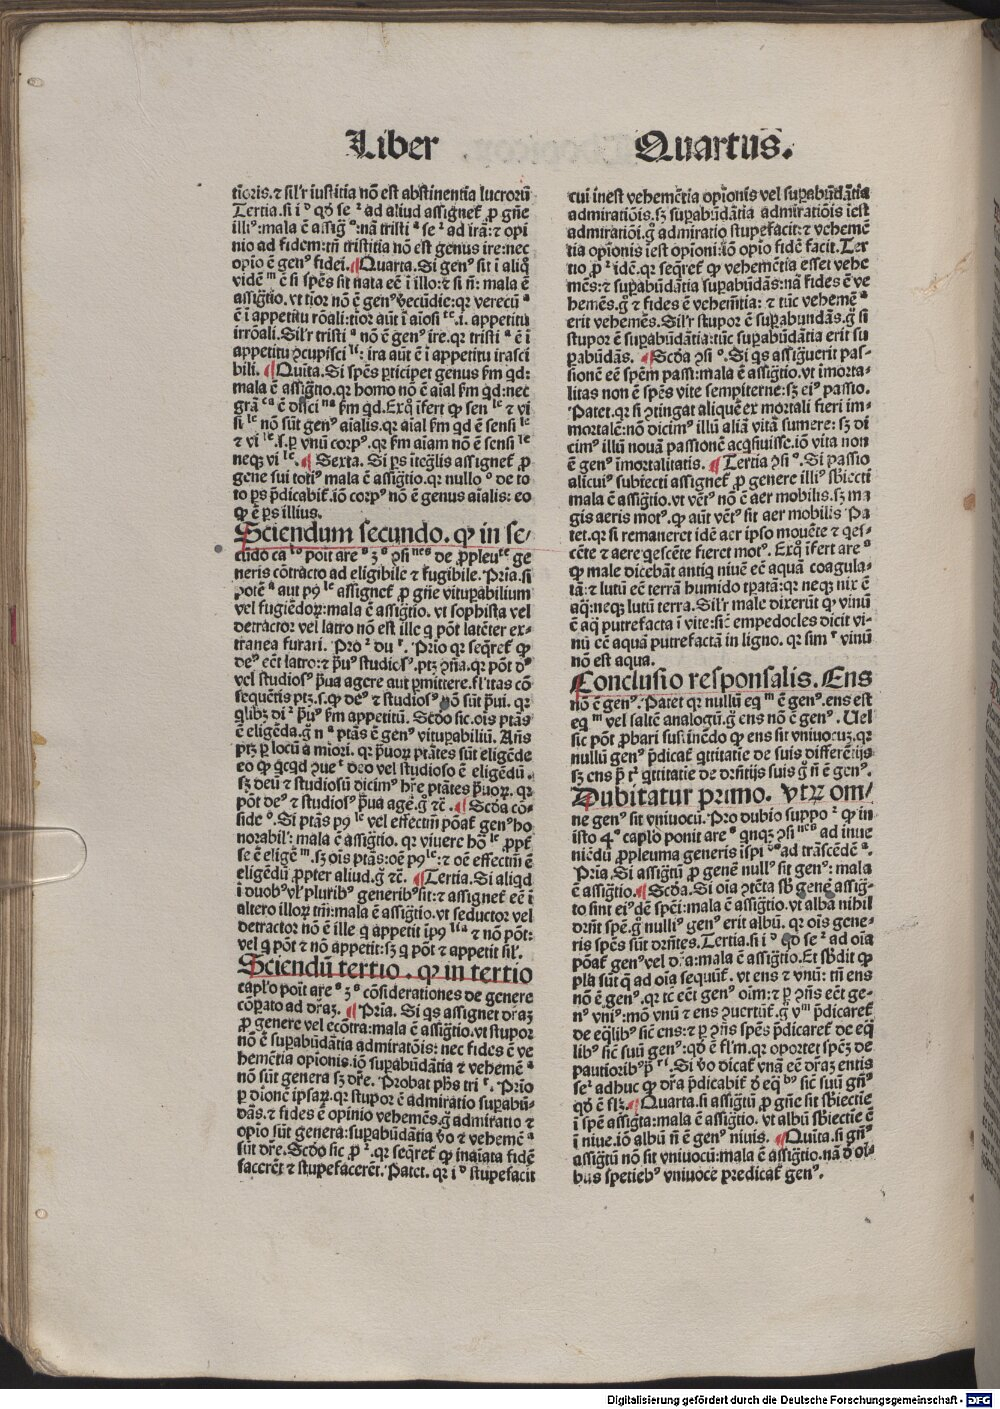 Liber Quartus.
tioris.⁊ sil'r iustitia nō est abstinentia lucrorū
Tertia.si i ᵒ qđ se ² ad aliud assignet̄ ꝓ gn̄e
illiꝰ:mala ē assig̃ ᵒ:nā tristi ᵃ se ² ad irā:⁊ opi
nio ad fidem:tn̄ tristitia nō est genus ire:nec
opio ē genꝰ fidei.¶Quarta.Si genꝰ sit ī aliq̊
vidē ᵐ ē si spēs sit nata eē ī illo:⁊ si n̄: mala ē
assig̃tio.vt tior nō ē genꝰ v̄ecūdie:qꝛ verecū ᵃ
ē ī appetitu rōali:tior aūt ī aīosi ᶜᵉ.i. appetitu
irrōali.Sil'r tristi ᵃ nō ē genꝰ ire.qꝛ tristi ᵃ ē ī
appetitu ꝯcupisci ˡᶦ: ira aūt ē ī appetitu irasci
bili. ¶Quīta.Si spēs ꝑticipet genus ẜm qd:
mala ē assig̃tio.qꝛ homo nō ē aīal ẜm qd:nec
grā ᶜᵃ ē disci ⁿᵃ ẜm qd.Exq̊ īfert ꝙ sen ˡᵉ ⁊ vi
si ˡᵉ nō sūt genꝰ aīalis.qꝛ aīal ẜm qd ē sensi ˡᵉ
⁊ vi ˡᵉ.s.ꝑ vnū corpꝰ.qꝛ ẜm aīam nō ē sensi ˡᵉ
neqꝫ vi ˡᵉ.¶ Sexta. Si ꝑs ītegl̄is assignet̄ ꝓ
gene sui totiꝰ mala ē assig̃tio.qꝛ nullo ᵒ de to
to ꝑs p̄dicabit̄.iō corpꝰ nō ē genus aīalis: eo
ꝙ ē ꝑs illius.
Sciendum secundo. ꝙ in se/
cūdo ca ˡᵒ poīt are ˢ ꝫ ˢ ꝯsi ⁿᵉˢ de ꝓpleu ᵗᵉ ge
neris cōtracto ad eligibile ⁊ fugibile.Pria.si
potē ᵃ aut pꝯ ˡᵉ assignet̄ ꝓ gn̄e vituꝑabilium
vel fugiēdoꝝ:mala ē assig̃tio. vt sophista vel
detractor vel latro nō est ille q pōt latēter ex-
tranea furari. Pro ² du ʳ. Prio qꝛ seq̄ret̄ ꝙ
deꝰ eēt latro:⁊ p̄uꝰ studiosꝰ.ptꝫ ꝯn̄a.qꝛ pōt đꝰ
vel studiosꝰ p̄ua agere aut ꝑmittere.fl'itas cō
sequētis ptꝫ.s.ꝙ deꝰ ⁊ studiosꝰ nō sūt p̄ui. qꝛ
qlibꝫ di ² p̄uꝰ ẜm appetitū. Scđo sic.ois ptās
ē eligēda.g̊ n ᵃ ptās ē genꝰ vituꝑabiliū. An̄s
ptꝫ ꝑ locū a miori. qꝛ p̄uoꝝ ptātes sūt eligēde
eo ꝙ qcqd ꝯue ᵗ deo vel studioso ē eligēdū.
sꝫ deū ⁊ studiosū dicimꝰ hr̄e ptātes p̄uoꝝ. qꝛ
pōt deꝰ ⁊ studiosꝰ p̄ua age.g̊ ⁊c̄.¶ Scđa cō-
side ᵒ.Si ptās pꝯ ˡᵉ vel effectm̄ pōat̄ genꝰ ho
norabil': mala ē assig̃tio. qꝛ viuere hō ˡᵉ ꝓpt̄
se ē eligē ᵐ.sꝫ ois ptās:oē pꝯˡᵉ:⁊ oē effectm̄ ē
eligēdū ꝓpter aliud.g̊ ⁊c̄. ¶Tertia.Si aliqd
ī duobꝰ vl' pluribꝰ generibꝰ sit:⁊ assignet̄ eē ī
altero illoꝝ tm̄:mala ē assig̃tio.vt seductor vel
detractor nō ē ille q appetit īpꝯ ˡᶦᵃ ⁊ nō pōt:
vel q pōt ⁊ nō appetit:sꝫ q pōt ⁊ appetit sil'.
Sciendū tertio. ꝙ in tertio
capl'o poīt are ˢ ꝫ ˢ cōsiderationes de genere
cōꝑato ad dr̄aꝫ. ¶ Pria. Si qs assignet dr̄aꝫ
ꝓ genere vel ecōtra:mala ē assig̃tio.vt stupor
nō ē suꝑabūdātia admiratōis: nec fides ē ve
hemētia opionis.iō suꝑabūdātia ⁊ vehemē ᵃ
nō sūt genera sꝫ dr̄e. Probat pħs tri ʳ. Prio
ꝑ dionē ipsaꝝ.qꝛ stupor ē admiratio suꝑabū-
dās.⁊ fides ē opinio vehemēs.g̊ admiratio ⁊
opio sūt genera:suꝑabūdātia v̊o ⁊ vehemē ᵃ
sūt dr̄e.Scđo sic ꝓ ².qꝛ seq̄ret̄ ꝙ inaīata fidē
facerēt ⁊ stupefacerēt.Patet. qꝛ i ᵒ stupefacit
cui inest vehemētia opīonis vel suꝑabūdātia
admiratiōis.sꝫ suꝑabūdātia admiratiōis īest
admiratiōi.g̊ admiratio stupefacit:⁊ vehemē
tia opīonis īest opīoni:iō opio fidē facit.Ter
tio ꝓ ² idē.qꝛ seq̄ret̄ ꝙ vehemētia esset vehe
mēs:⁊ suꝑabūdātia suꝑabūdās:nā fides ē ve
hemēs.g̊ ⁊ fides ē vehem̄tia: ⁊ tūc vehemē ᵃ
erit vehemēs.Sil'r stupor ē suꝑabundās.g̊ si
stupor ē suꝑabūdātia:tūc suꝑabūdātia erit su
ꝑabūdās. ¶Scđa ꝯsi ᵒ.Si qs assig̃uerit pas-
sionē eē spēm pass:mala ē assig̃tio.vt īmorta-
litas non ē spēs vite sempiterne:sꝫ eiꝰ passio.
Patet.qꝛ si ꝯtingat aliquē ex mortali fieri im-
mortalē:nō dicimꝰ illū aliā vitā sumere: sꝫ di
cimꝰ illū nouā passionē acq̄siuisse.iō vita non
ē genꝰ īmortalitatis. ¶Tertia ꝯsi ᵒ.Si passio
alicuiꝰ subiecti assignet̄ ꝓ genere illiꝰ sƀiecti
mala ē assig̃tio.vt vētꝰ nō ē aer mobilis.sꝫ ma
gis aeris motꝰ.ꝙ aūt vētꝰ sit aer mobilis pa
tet.qꝛ si remaneret idē aer ipso mouēte ⁊ qes-
cēte ⁊ aere qescēte fieret motꝰ. Exq̊ īfert are ˢ
ꝙ male dicebāt antiq niuē eē aquā coagula-
tā:⁊ lutū eē terrā humido tꝑatā:qꝛ neqꝫ nix ē
aq̄:neqꝫ lutū terra.Sil'r male dixerūt ꝙ vinū
ē aq̄ putrefacta ī vite:sic̄ empedocles dicit vi-
nū eē aquā putrefactā in ligno. qꝛ sim ʳ vinū
nō est aqua.
Conclusio responsalis. Ens
nō ē genꝰ. Patet qꝛ nullū eq ᵐ ē genꝰ.ens est
eq ᵐ vel saltē analogū.g̊ ens nō ē genꝰ. Uel
sic pōt ꝓbari sustinēdo ꝙ ens sit vniuocuꝫ.qꝛ
nullū genꝰ p̄dicat̄ qtitatie de suis differētijs
sꝫ ens p̄ tᶦ qtitatie de drn̄tijs suis g̊ n̄ ē genꝰ.
Dubitatur primo. vtꝝ om/
ne genꝰ sit vniuocū.Pro dubio suppo ² ꝙ in
isto 4ᵒ caplo ponit are ˢ qnqꝫ ꝯsi ⁿᵉˢ ad inue
niēdū ꝓpleuma generis īspi ᵈᵒ ad trāscēdē ᵃ.
Pria.Si assig̃tū ꝓ genē nullꝰ sit genꝰ: mala
ē assig̃tio.¶Scđa.Si oīa ꝯtēta sƀ genē assig̃-
to sint eiꝰdē spēi:mala ē assig̃tio.vt albā nihil
drn̄t spē.g̊ nulliꝰ genꝰ erit albū. qꝛ oīs gene-
ris spēs sūt drn̄tes.Tertia.si i ᵒ qđ se ² ad oīa
pōat̄ genꝰvel dr̄a:mala ē assig̃tio.Et sƀdit ꝙ
pl̄a sūt q̄ ad oīa sequūt̄. vt ens ⁊ vnū: tn̄ ens
nō ē genꝰ. qꝛ tc̄ eēt genꝰ oīm:⁊ ꝑ ꝯn̄s eēt ge-
nꝰ vniꝰ:mō vnū ⁊ ens ꝯuertūt̄.g̊ vᵐ p̄dicaret̄
de eq̄libꝰ sic̄ ens:⁊ ꝑ ꝯn̄s spēs p̄dicaret̄ de eq̄
libꝰ sic̄ suū genꝰ:qđ ē fl'm.qꝛ oportet spēꝫ de
pautioribꝰp̄ ʳᶦ. Si v̊o dicat̄ vnā eē dr̄aꝫ entis
seᶦ adhuc ꝙ dr̄a p̄dicabit̄ đ eq̄ ᵇꝰ sic̄ suū gn̄ꝰ
qđ ē fl'ꝫ.¶Quarta.si assig̃tū ꝓ gn̄e sit sƀiectie
ī spē assig̃ta:mala ē assig̃tio. vt albū sƀiectie ē
ī niue.iō albū n̄ ē genꝰ niuis. ¶Quīta.si gn̄ꝰ
assig̃tū nō sit vniuocū:mala ē assig̃tio.nā đ oī-
bus spetiebꝰ vniuoce predicat̄ genꝰ.
Digitalisierung gefördert durch die Deutsche Forschungsgemeinschaft - DFG